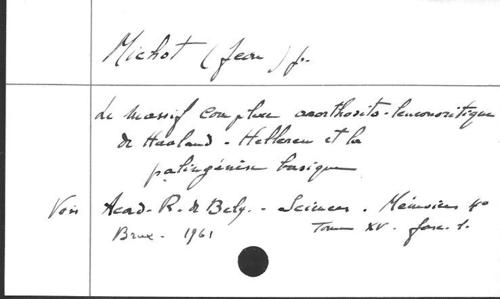 Michot (Jean) fr.
Le Massif complexe anorthosito-leuconoritique
de Haaland - Helleren et la
palingénèse basique
Voir Acad. R. de Belg. - Sciences. Mémoires 4o
Brux. - 1961 Tome XV. fasc. 1.